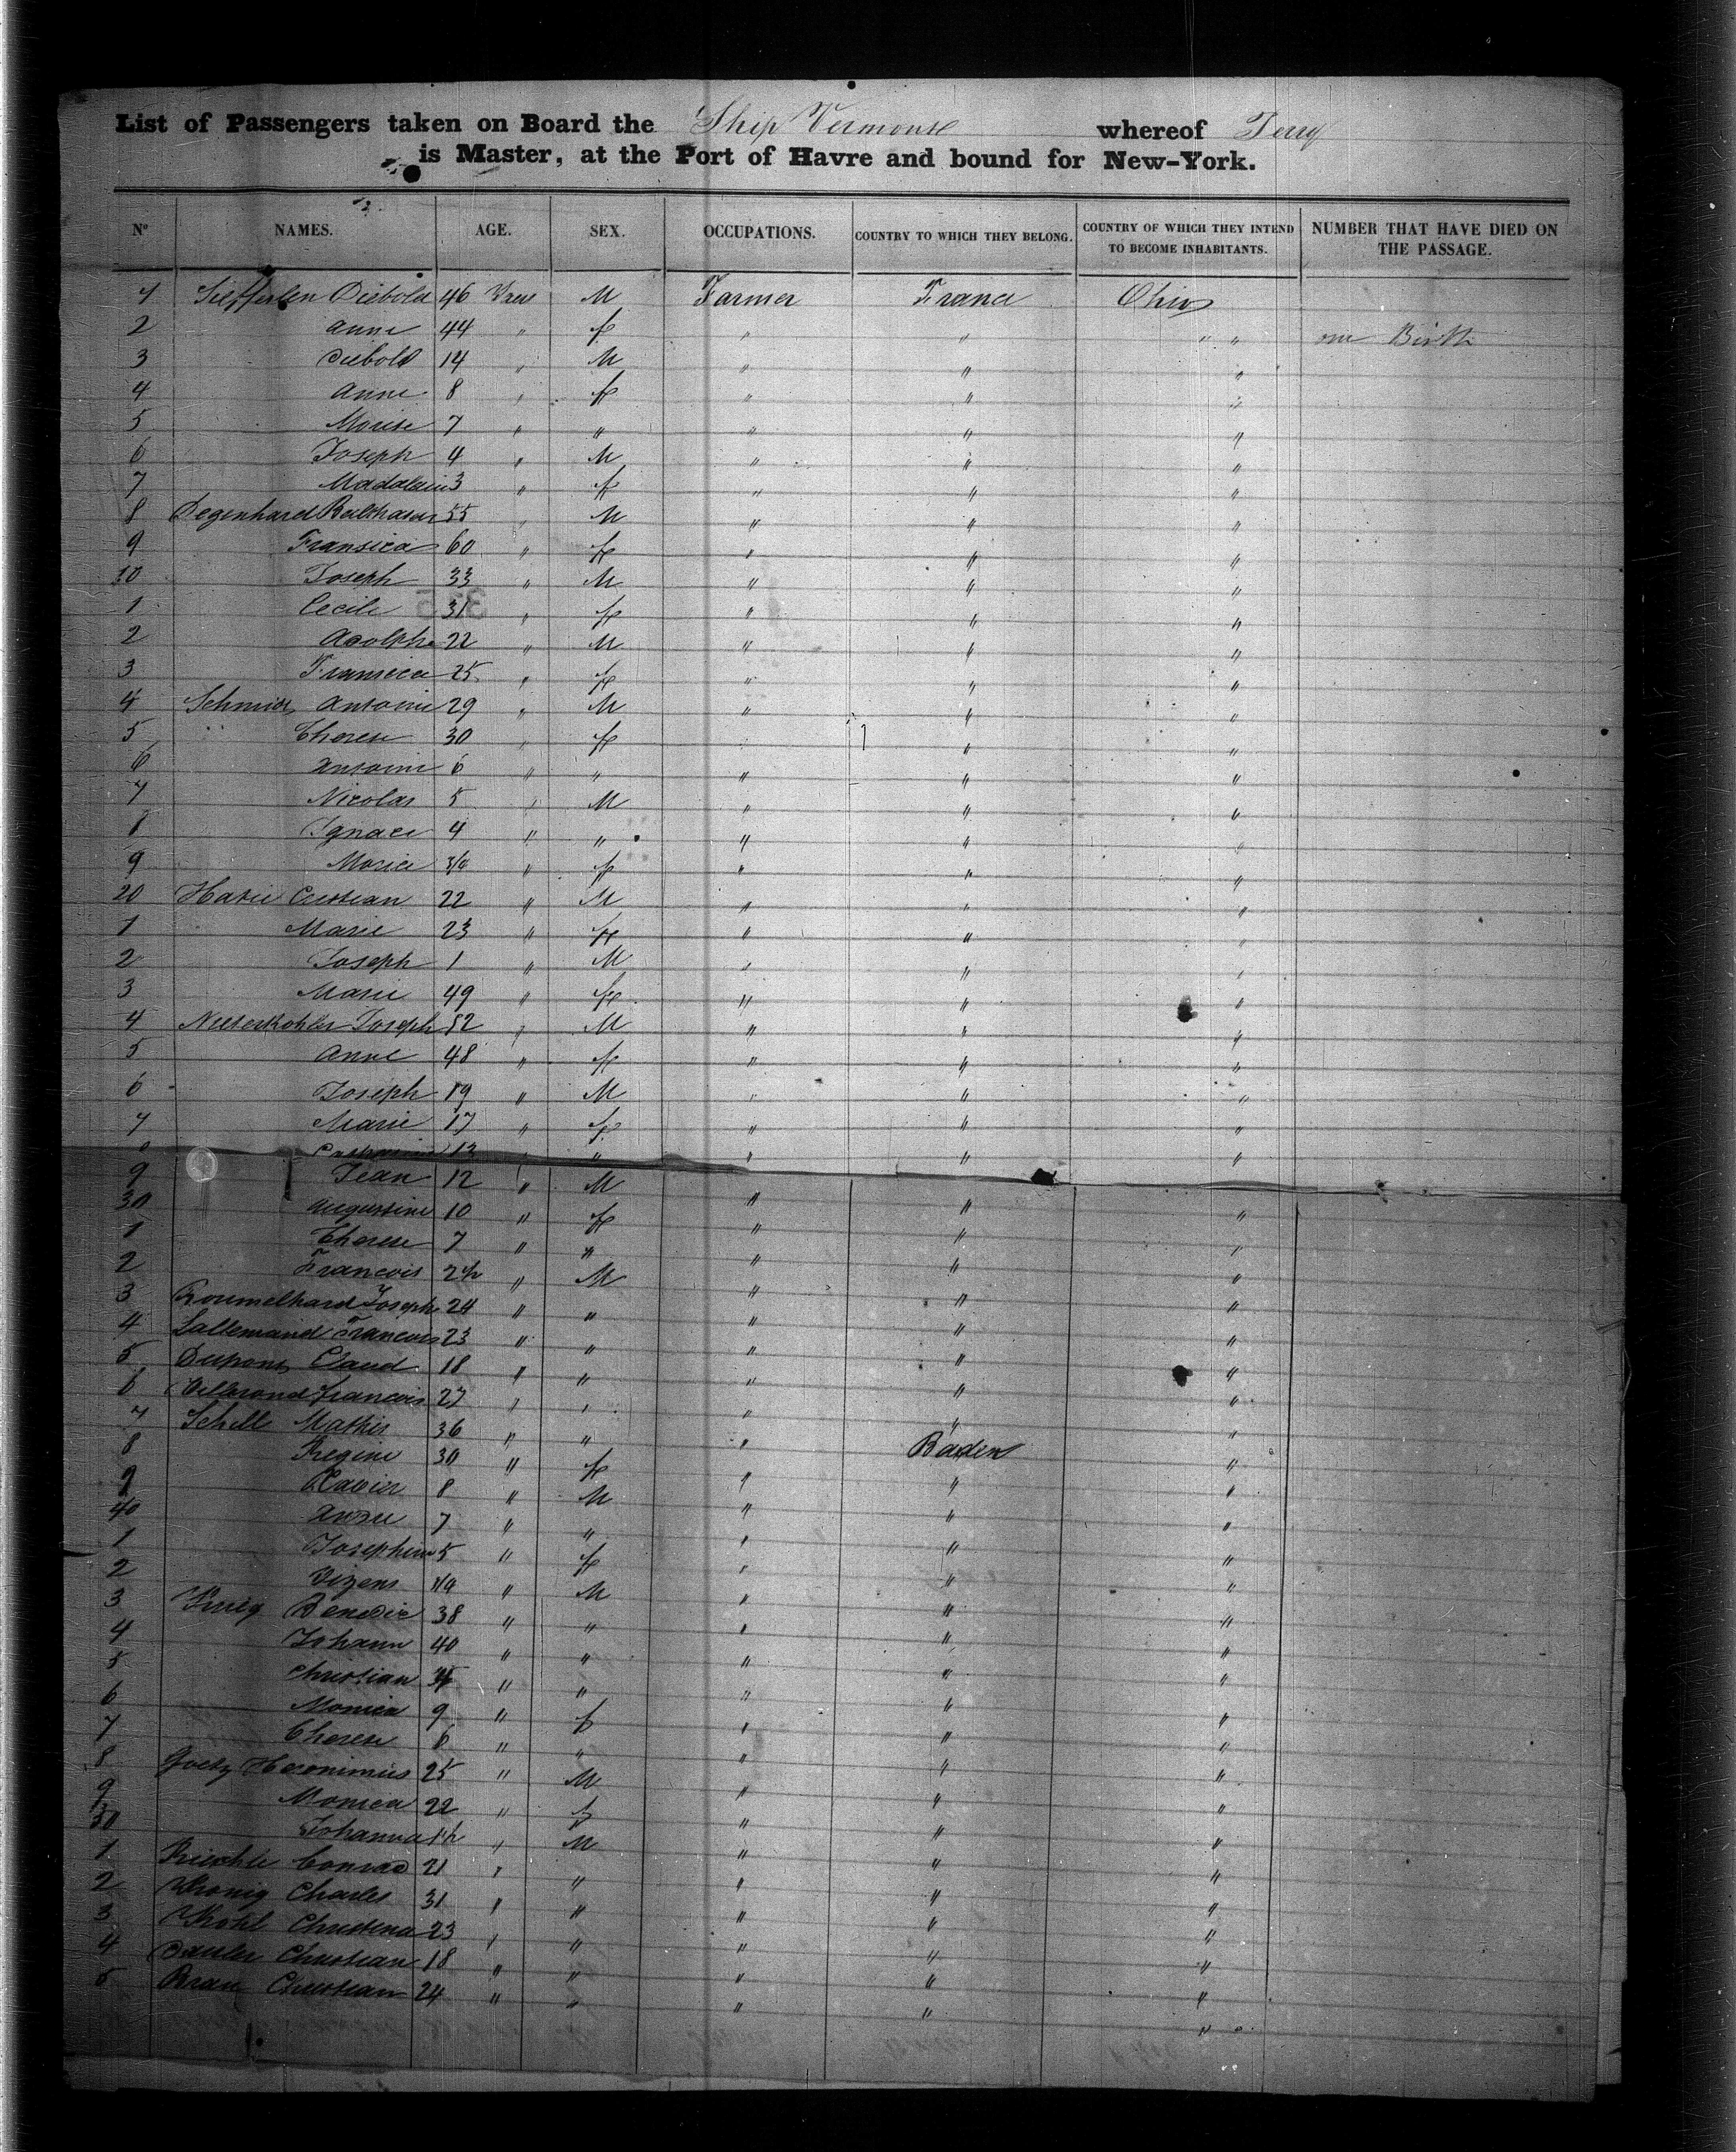 List of Passengers taken on Board the Ship Vermont whereof Terry
is Master, at the Port of Havre and bound for New-York.
Nº NAMES. AGE. SEX. OCCUPATIONS. COUNTRY TO WHICH THEY BELONG. COUNTRY OF WHICH THEY INTEND TO BECOME INHABITANTS. NUMBER THAT HAVE DIED ON THE PASSAGE.
1 Diebold 46 M Farmer France Ohio
2 Anne 44 f " " " " one Birth
3 Diebold 14 " M " " "
4 Anne 8 " f " " "
5 7 " " " " "
6 Joseph 4 " M " " "
7 Madalain 3 " f " " "
8 Degenhard Balthasar 55 " M " " "
9 Fransica 60 " f " " "
10 Joseph 33 " M " " "
1 Cecile 31 " f " " "
2 Adolphe 22 " M " " "
3 Fransica 25 " f " " "
4 Schmidt Antoine 29 " M " " "
5 " Therese 30 " f " " "
6 Antoine 6 " " " " "
7 Nicolas 5 " M " " "
8 Ignace 4 " " " " "
9 Marie 3/4 " f " " "
20 22 " M " " "
1 Marie 23 " f " " "
2 Joseph 1 " M " " "
3 Marie 49 " f " " "
4 Joseph 52 " M " " "
5 Anne 48 " f " " "
6 Joseph 19 " M " " "
7 Marie 17 " f " " "
8 13 " " " " "
9 Jean 12 " M " " "
30 Augustine 10 " f " " "
1 Therese 7 " " " " "
2 Francois " M " " "
3 Joseph 24 " " " " "
4 Lallemand Francois 23 " " " " "
5 Dupont Claud 18 " " " " "
6 Francois 27 " " " " "
7 Schell Mathis 36 " " " Baden "
8 Regine 30 " f " " "
9 Xavier 8 " M " " "
40 7 " " " " "
1 Josephine 5 " f " " "
2 " M " " "
3 Benedic 38 " " " " "
4 Johann 40 " " " " "
5 Christian " " " " "
6 Monica 9 " f " " "
7 Therese 6 " " " " "
8 Goetz Heronimus 25 " M " " "
9 Monica 22 " f " " "
50 Johanna " M " " "
1 Conrad 21 " " " " "
2 Charles 31 " " " " "
3 Kohl Christina 23 " " " " "
4 Christian 18 " " " " "
5 Braun Christian 24 " " " " "